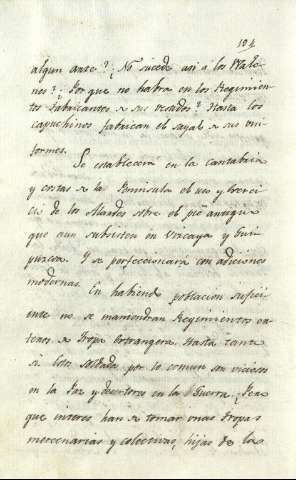 104
algun ante? ¿No sucede asi á los Plate
ros? ¿Por que no habra en los Regimien
tos fabricantes de sus vestidos? Hasta los
capuchinos fabrican el sayal de sus uni
formes.
Se establecerá en la Cantabria
y costas de la Peninsula el uso y exerci
cio de los sobre el pie antiguo
que aun subsisten en Vizcaya y Gui
puzcoa. Y se perfeccionará con adiciones
modernas.
En habiendo poblacion sufici
ente no se mantendran Regimientos en
teros de Tropa Extrangera. Hasta tanto
si estos soldados por lo comun son viciosos
en la Paz y desertores en la Guerra. ¿Pero
que interes han de tomar unas Tropas
mercenarias y colecticias, hijas de las